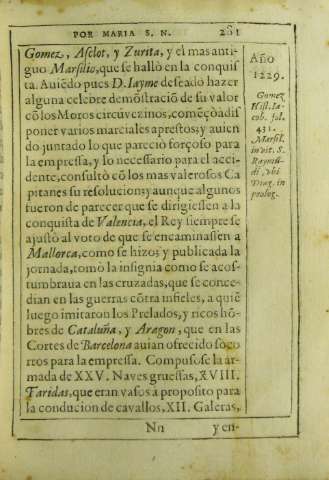 POR MARIA S. N. 281
Gomez, Asclot, y Zurita, y el mas anti-
guo Marsilio, que se hallò en la conquis
ta. Auiẽdo pues D. Iayme deseado hazer
alguna celebre demõstraciõ de su valor
cõ los Moros circũvezinos, comẽçò à dis
poner varios marciales aprestos; y auien
do juntado lo que pareciò forçoso para
la empressa, y lo necessario para el acci-
dente, consultò cõ los mas valerosos Ca
pitanes su resolucion; y aunque algunos
fueron de parecer que se dirigiessen a la
conquista de Valencia, el Rey siempre se
ajustò al voto de que se encaminassen a
Mallorca, como se hizo; y publicada la
jornada, tomò la insignia como se acos-
tumbraua en las cruzadas, que se conce-
dian en las guerras cõtra infieles, a quiẽ
luego imitaron los Prelados, y ricos hõ-
bres de Cataluña, y Aragon, que en las
Cortes de Barcelona auian ofrecido soco
rros para la empressa. Compusose la ar-
mada de XXV. Naves gruessas, XVIII.
Taridas, que eran vasos a proposito para
la conducion de cavallos, XII. Galeras,
Nn yen-
Año
1229.
Gomez
Hist. Ia-
cob. fol.
431.
Marsil.
in vit. S.
Raymũ-
di, vbi
Diag. in
prolog.